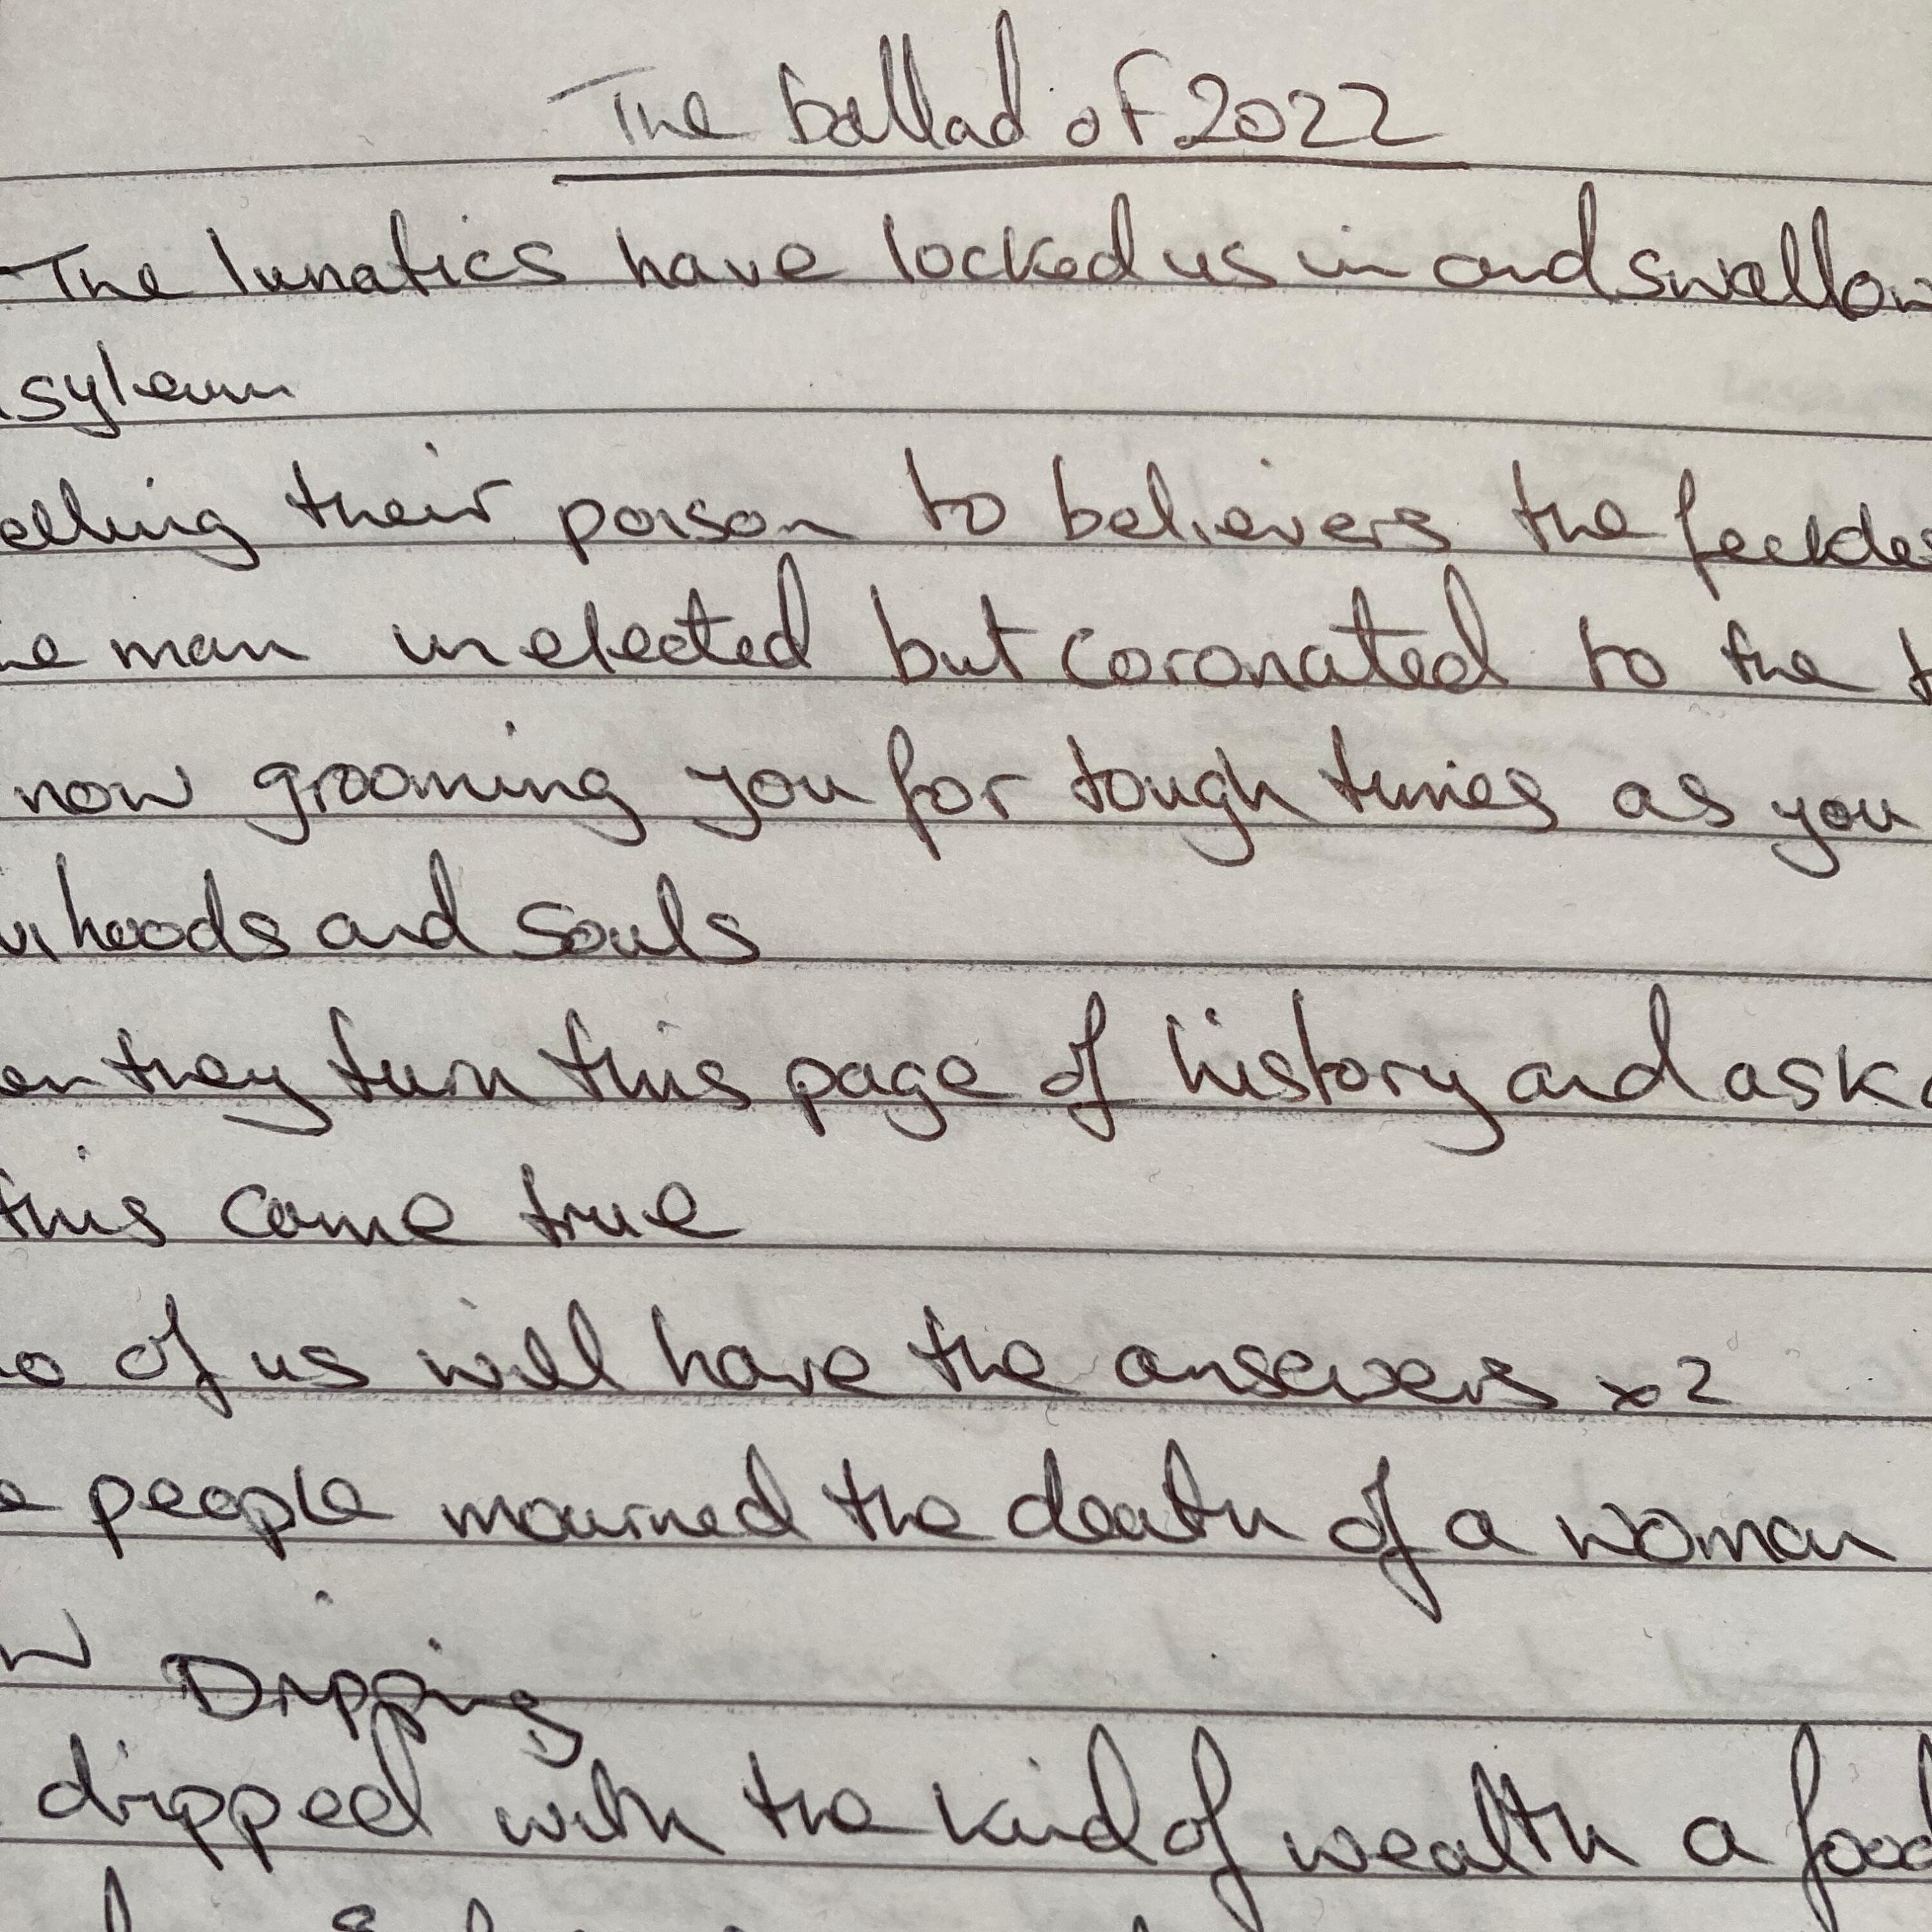 The ballad of 2022
The lunatics have locked us in and swallow
syleum
elling their poison to believers the feckles
e man unelected but coronated to the t
now grooming you for tough times as you
hoods and souls
en they turn this page of history and ask
this come true
o of us will have the ansewers x2
e people mourned the death of a woman
w Dripping
dripped with the kind of wealth a food